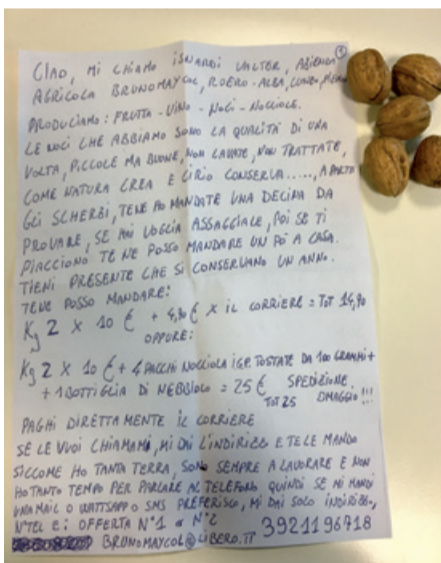 CIAO, MI CHIAMO ISNARDI VALTER, AZIENDA 1
AGRICOLA BRUNOMAYCOL, ROERO-ALBA, CUNEO,
PRODUCIAMO: FRUTTA-VINO-NOCI-NOCCIOLE.
LE NOCI CHE ABBIAMO SONO LA QUALITÀ DI UNA
VOLTA, PICCOLE MA BUONE, NON LAVATE, NON TRATTATE,
COME NATURA CREA E CIRIO CONSERVA....., A PARTE
GLI SCHERZI, TENE HO MANDATE UNA DECINA DA
PROVARE, SE HAI VOGLIA ASSAGGIALE, POI SE TI
PIACCIONO TE NE POSSO MANDARE UN PÒ A CASA.
TIENI PRESENTE CHE SI CONSERVANO UN ANNO.
TENE POSSO MANDARE:
Kg 2 X 10 € + 4,90 € X IL CORRIERE = TOT 14,90
OPPURE:
Kg 2 X 10 € + 4 PACCHI NOCCIOLA IGP. TOSTATE DA 100 GRAMMI +
+ 1 BOTTIGLIA DI NEBBIOLO = 25 € SPEDIZIONE
TOT 25 OMAGGIO!!!
PAGHI DIRETTAMENTE IL CORRIERE
SE LE VUOI CHIAMAMI, MI DAI L'INDIRIZZO E TE LE MANDO
SICCOME HO TANTA TERRA, SONO SEMPRE A LAVORARE E NON
HO TANTO TEMPO PER PARLARE AL TELEFONO QUINDI SE MI MANDI
UNA MAIL O WATTSAPP O SMS PREFERISCO, MI DAI SOLO INDIRIZZO,
N°TEL E: OFFERTA N°1 O N°2 3921196718
BRUNOMAYCOL@LIBERO.IT